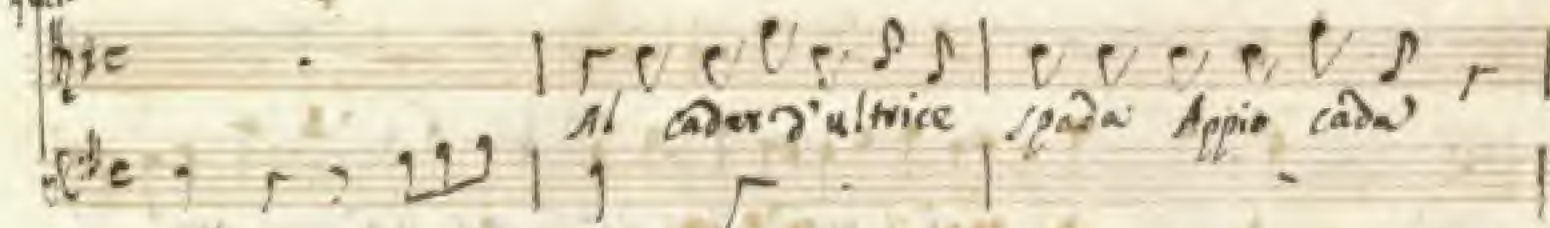 Al cader d'ultrice spada Appio cada